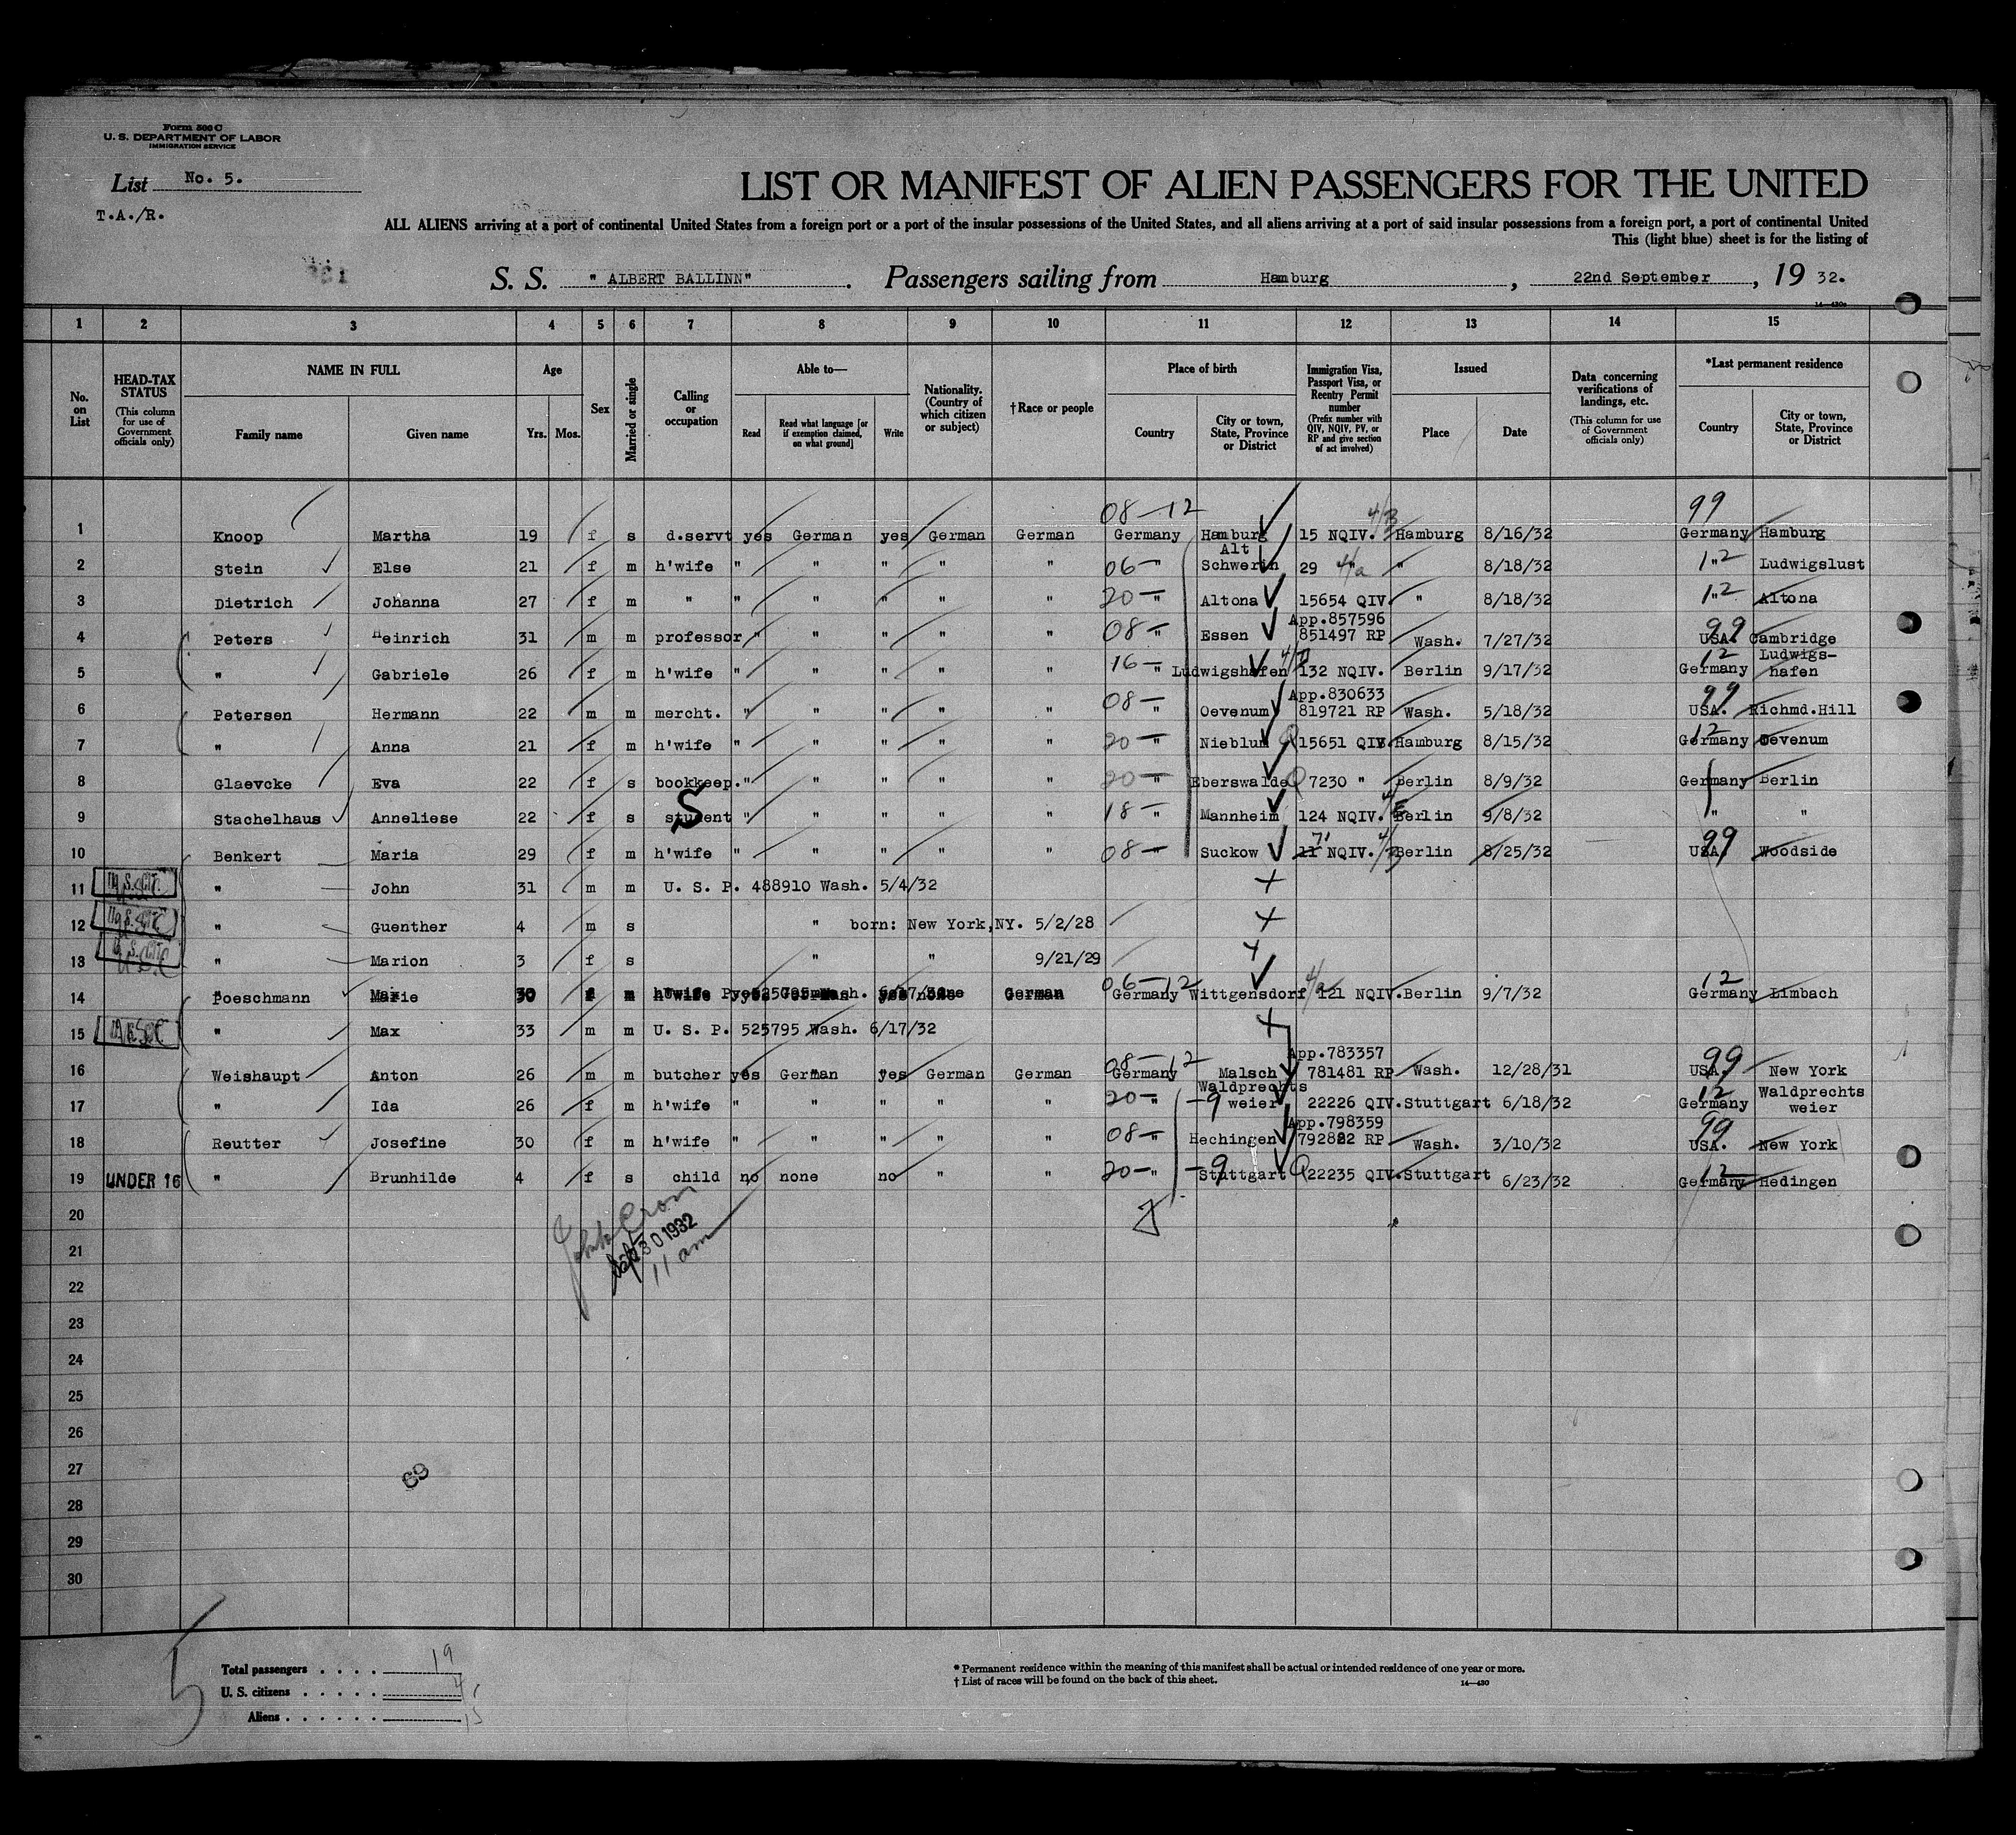 Form 500 C
U. S. DEPARTMENT OF LABOR
IMMIGRATION SERVICE
List No. 5.
T.A./R.
LIST OR MANIFEST OF ALIEN PASSENGERS FOR THE UNITED
ALL ALIENS arriving at a port of continental United States from a foreign port or a port of the insular possessions of the United States, and all aliens arriving at a port of said insular possessions from a foreign port, a port of continental United
This (light blue) sheet is for the listing of
S. S. " ALBERT BALLINN" . Passengers sailing from Hamburg , 22nd September , 19 32.
1 2 3 4 5 6 7 8 9 10 11 12 13 14 15
No. on List
HEAD-TAX STATUS (This column for use of Government officials only)
NAME IN FULL Family name Given name
Age Yrs. Mos.
Sex
Married or single
Calling or occupation
Able to— Read Read what language [or if exemption claimed, on what ground] Write
Nationality. (Country of which citizen or subject)
†Race or people
Place of birth Country City or town, State, Province or District
Immigration Visa, Passport Visa, or Reentry Permit number (Prefix number with QIV, NQIV, PV, or RP and give section of act involved)
Issued Place Date
Data concerning verifications of landings, etc. (This column for use of Government officials only)
*Last permanent residence Country City or town, State, Province or District
08-12 4/3 99
1 Knoop Martha 19 f s d.servt yes German yes German German Germany Hamburg 15 NQIV. Hamburg 8/16/32 Germany Hamburg
Alt
2 Stein Else 21 f m h'wife " " " " " 06- " Schwerin 29 " 4/a " 8/18/32 " 12 Ludwigslust
3 Dietrich Johanna 27 f m " " " " " " 20- " Altona 15654 QIV. " 8/18/32 " 12 Altona
App.857596
4 Peters Heinrich 31 m m professor " " " " " 08- " Essen 851497 RP Wash. 7/27/32 99 USA. Cambridge
Ludwigs-
5 " Gabriele 26 f m h'wife " " " " " 16- " Ludwigshafen 132 NQIV. Berlin 9/17/32 12 Germany hafen
App.830633
6 Petersen Hermann 22 m m mercht. " " " " " 08- " Oevenum 819721 RP Wash. 5/18/32 99 USA. Richmd.Hill
7 " Anna 21 f m h'wife " " " " " 20- " Nieblum Q 15651 QIV. Hamburg 8/15/32 12 Germany Oevenum
8 Glaevcke Eva 22 f s bookkeep. " " " " " 20- " Eberswalde Q 7230 " Berlin 8/9/32 Germany Berlin
9 Stachelhaus Anneliese 22 f s student S " " " " " 18- " Mannheim 124 NQIV. Berlin 9/8/32 " "
10 Benkert Maria 29 f m h'wife " " " " " 08- " Suckow 11 NQIV. 4/3 Berlin 8/25/32 99 USA. Woodside
11 " John 31 m m U. S. P. 488910 Wash. 5/4/32
12 " Guenther 4 m s " born: New York,NY. 5/2/28
13 " Marion 3 f s " " 9/21/29
14 Poeschmann Marie 30 f m h'wife yes German yes none German 06-12 Germany Wittgensdorf 4/a 121 NQIV. Berlin 9/7/32 12 Germany Limbach
15 " Max 33 m m U. S. P. 525795 Wash. 6/17/32
App.783357
16 Weishaupt Anton 26 m m butcher yes German yes German German 08-12 Germany Malsch 781481 RP Wash. 12/28/31 99 USA. New York
Waldprechts Waldprechts
17 " Ida 26 f m h'wife " " " " " 20- " -9 weier 22226 QIV. Stuttgart 6/18/32 12 Germany weier
App.798359
18 Reutter Josefine 30 f m h'wife " " " " " 08- " Hechingen 792822 RP Wash. 3/10/32 99 USA. New York
19 UNDER 16 " Brunhilde 4 f s child no none no " " 20- " -9 Stuttgart Q 22235 QIV. Stuttgart 6/23/32 12 Germany Hedingen
20
21
Sept 30 1932
11 am
22
23
24
25
26
27
69
28
29
30
5
Total passengers . . . . 19
U. S. citizens . . . . . 4
Aliens . . . . . . 15
* Permanent residence within the meaning of this manifest shall be actual or intended residence of one year or more.
† List of races will be found on the back of this sheet.
14—430